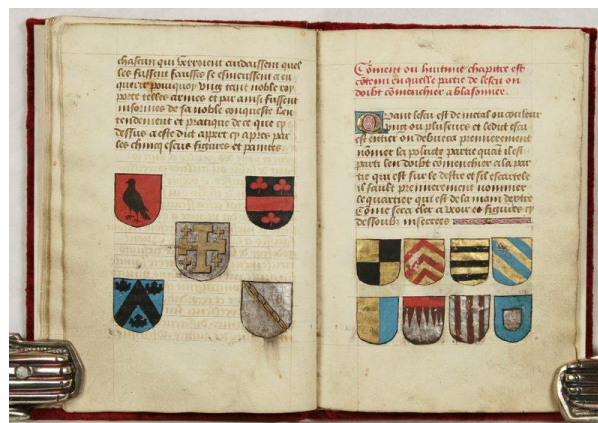 chascun qui verroient cuidaissent quel
les fussent faulses se esmeussent a en
querir pourquoy ung tant noble roy
porte telles armes et par ainsi fussent
informes de sa noble conqueste Len
tendement et pratique de ce que cy
dessus a este dit appert cy apres par
les chincq escus figures et paintes
Coment ou huitime chapitre est
contenu en quelle partie de lescu on
doibt comencher a blasonner.
Quant lescu est de metal ou couleur
ung ou pluseurs et ledit escu
est entier on debvera premierement
nomer la plus de partie quant il est
parti len doibt comencher a la par
tie qui est sur le destre et sil escartele
il fault premierement nommer
le quartier qui est de la main dextre
Come cecy cler a veoir es figures cy
dessoubz inserees